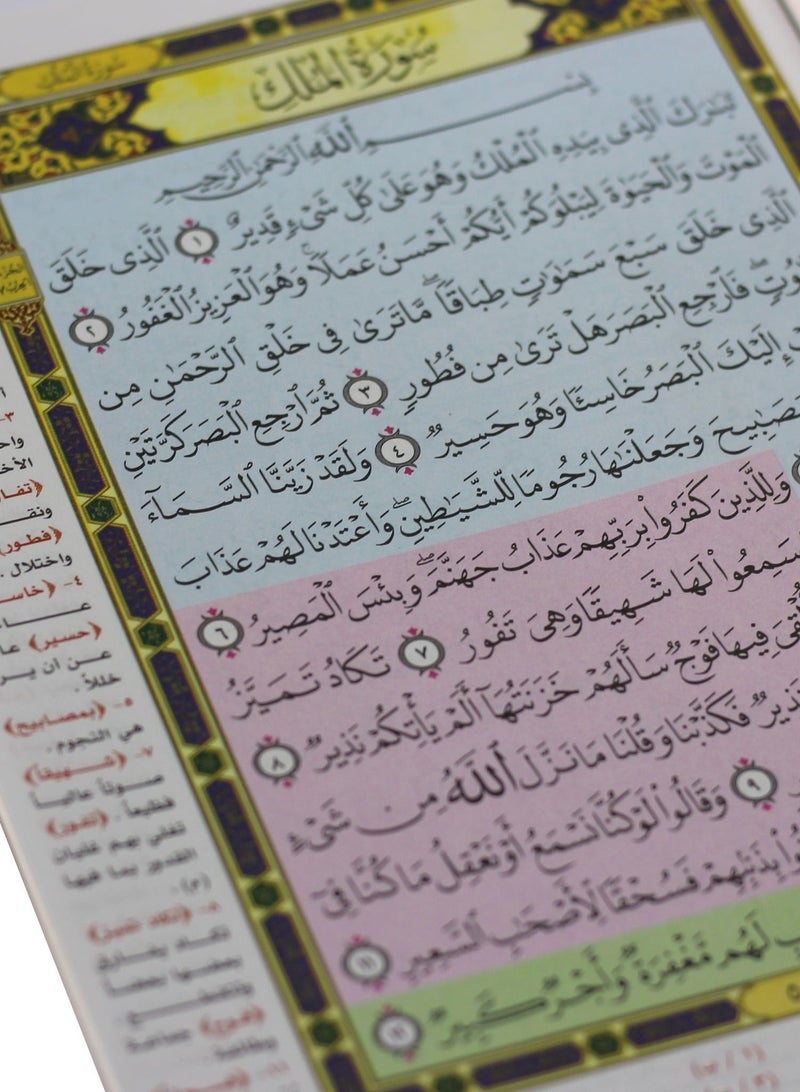 سورة الملك
سُورَةُ المُلْكِ
بِسْمِ ٱللَّهِ ٱلرَّحْمَٰنِ ٱلرَّحِيمِ
تَبَٰرَكَ ٱلَّذِى بِيَدِهِ ٱلْمُلْكُ وَهُوَ عَلَىٰ كُلِّ شَىْءٍ قَدِيرٌ ١ ٱلَّذِى خَلَقَ
ٱلْمَوْتَ وَٱلْحَيَوٰةَ لِيَبْلُوَكُمْ أَيُّكُمْ أَحْسَنُ عَمَلًا ۚ وَهُوَ ٱلْعَزِيزُ ٱلْغَفُورُ ٢
ٱلَّذِى خَلَقَ سَبْعَ سَمَٰوَٰتٍ طِبَاقًا ۖ مَّا تَرَىٰ فِى خَلْقِ ٱلرَّحْمَٰنِ مِن
فَٱرْجِعِ ٱلْبَصَرَ هَلْ تَرَىٰ مِن فُطُورٍ ٣ ثُمَّ ٱرْجِعِ ٱلْبَصَرَ كَرَّتَيْنِ
إِلَيْكَ ٱلْبَصَرُ خَاسِئًا وَهُوَ حَسِيرٌ ٤ وَلَقَدْ زَيَّنَّا ٱلسَّمَآءَ
وَجَعَلْنَٰهَا رُجُومًا لِّلشَّيَٰطِينِ ۖ وَأَعْتَدْنَا لَهُمْ عَذَابَ
وَلِلَّذِينَ كَفَرُوا۟ بِرَبِّهِمْ عَذَابُ جَهَنَّمَ ۖ وَبِئْسَ ٱلْمَصِيرُ ٦
سَمِعُوا۟ لَهَا شَهِيقًا وَهِىَ تَفُورُ ٧ تَكَادُ تَمَيَّزُ
فِيهَا فَوْجٌ سَأَلَهُمْ خَزَنَتُهَآ أَلَمْ يَأْتِكُمْ نَذِيرٌ ٨
نَذِيرٌ فَكَذَّبْنَا وَقُلْنَا مَا نَزَّلَ ٱللَّهُ مِن شَىْءٍ
٩ وَقَالُوا۟ لَوْ كُنَّا نَسْمَعُ أَوْ نَعْقِلُ مَا كُنَّا فِىٓ
بِذَنۢبِهِمْ فَسُحْقًا لِّأَصْحَٰبِ ٱلسَّعِيرِ ١١
لَهُم مَّغْفِرَةٌ وَأَجْرٌ كَبِيرٌ ١٢
٣-
﴿تفا
ونقـ
﴿فطور
واختلال .
٤- ﴿خاسـ
﴿حسير﴾
عن ان ير
خللاً .
٥- ﴿بمصابيح﴾
هي النجوم .
٧- ﴿شهيقاً﴾
صوتاً عالياً
فظيعاً. ﴿تفور﴾
تغلي بهم غليان
القدور بما فيها
(م).
٨- ﴿تكاد تميز﴾
تكاد يفارق
بعضها بعضاً
وتتقطع .
﴿فوج﴾ جماعة